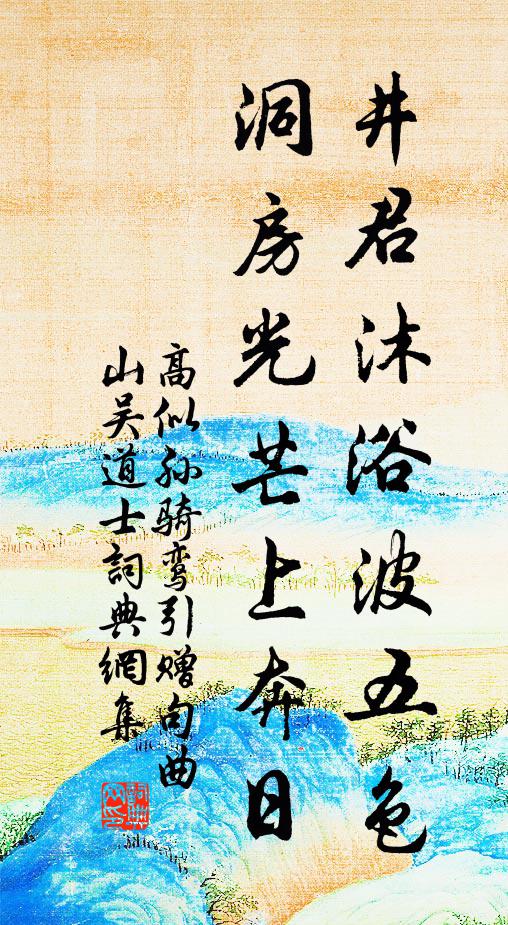 井君沐浴波五色
洞房光芒上奔日
高似孙骑鸾引赠句曲
山吴道士詞典網集